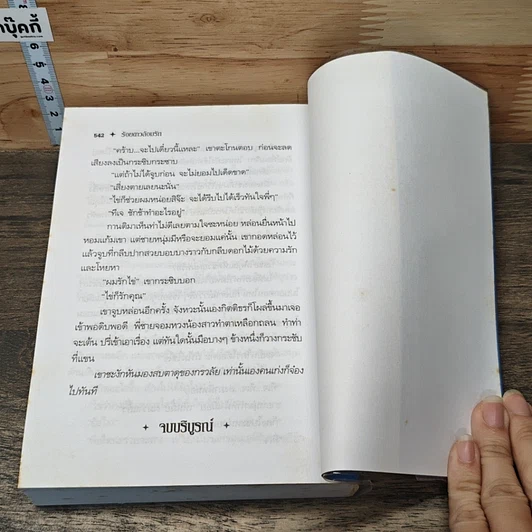 บุ๊คกี้
542 ✦ ร้อยดาวล้อมรัก
"คร้าบ...จะไปเดี๋ยวนี้แหละ" เขาตะโกนตอบ ก่อนจะลด
เสียงลงเป็นกระซิบกระซาบ
"แต่ถ้าไม่ได้จูบก่อน จะไม่ยอมไปเด็ดขาด"
"เสียงตายเลยนะนั่น"
"ไข่ก็ช่วยผมหน่อยสิจ๊ะ จะได้รีบไปได้เร็วทันใจพี่ๆ"
"ทีเจ ชักช้าทำอะไรอยู่"
การดิมาเห็นท่าไม่ดีเลยตามใจซะหน่อย หล่อนยื่นหน้าไป
หอมแก้มเขา แต่ชายหนุ่มมีหรือจะยอมแค่นั้น เขากอดหล่อนไว้
แล้วจูบที่กลีบปากสวยบอบบางราวกับกลีบดอกไม้ด้วยความรัก
และโหยหา
"ผมรักไข่" เขากระซิบบอก
"ไข่ก็รักคุณ"
เขาจูบหล่อนอีกครั้ง จังหวะนั้นเองกิตติธรก็โผล่ขึ้นมาเจอ
เข้าพอดิบพอดี พี่ชายจอมหวงน้องสาวทำตาเหลือกถลน ทำท่า
จะเต้น ปรี่เข้าเอาเรื่อง แต่ทันใดนั้นมือบางๆ ข้างหนึ่งก็วางกระชับ
ที่แขน
เขาชะงักหันมองสบตาดุของกรวลัย เท่านั้นเองคนเก่งก็จ๋อง
ไปทันที
✦ จบบริบูรณ์ ✦
6
5
4
3
2
1